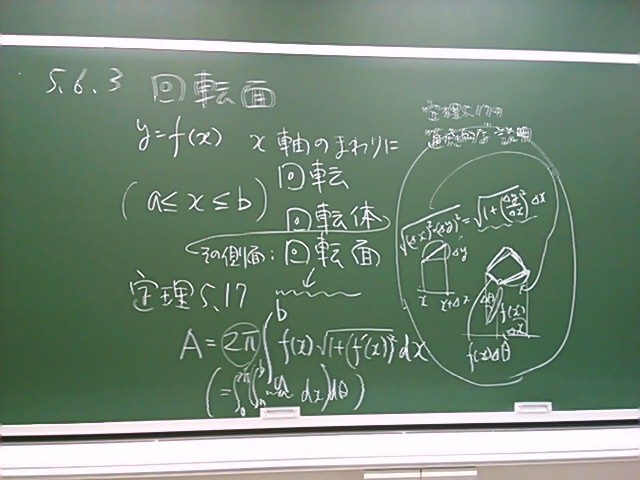 5.6.3 回転面
y=f(x) x軸のまわりに
(a≤x≤b) 回転
回転体
その側面:回転面
定理5.17
A=2π∫_a^b f(x)√(1+(f'(x))²) dx
(=∫_0^{2π}(∫_a^b 〃 dx)dθ)
定理5.17の
直感的な説明
√((Δx)²+(Δy)²)=√(1+(Δy/Δx)²) Δx
Δy
x x+Δx
Δθ
f(x)
Δx
f(x)Δθ